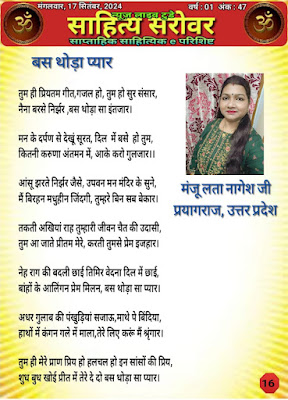 मंगलवार, 17 सितंबर, 2024
न्यूज़ लाइव टुडे
वर्ष : 01 अंक : 47
साहित्य सरोवर
साप्ताहिक साहित्यिक e परिशिष्ट
बस थोड़ा प्यार
तुम ही प्रियतम गीत,गजल हो, तुम हो सुर संसार,
नैना बरसे निर्झर ,बस थोड़ा सा इंतजार।
मन के दर्पण से देखूं सूरत, दिल में बसे हो तुम,
कितनी करुणा अंतमन में, आके करो गुलजार।।
आंसू झरते निर्झर जैसे, उपवन मन मंदिर के सुने,
मैं बिरहन मधुहीन जिंदगी, तुम्हरे बिन सब बेकार।
तकती अखियां राह तुम्हारी जीवन चैत की उदासी,
तुम आ जाते प्रीतम मेरे, करती तुमसे प्रेम इजहार।
नेह राग की बदली छाई तिमिर वेदना दिल में छाई,
बांहों के आलिंगन प्रेम मिलन, बस थोड़ा सा प्यार।
अधर गुलाब की पंखुड़ियां सजाऊ,माथे पे बिंदिया,
हाथों में कंगन गले में माला,तेरे लिए करूं मैं श्रृंगार।
तुम ही मेरे प्राण प्रिय हो हलचल हो इन सांसों की प्रिय,
शुध बुध खोई प्रीत में तेरे दे दो बस थोड़ा सा प्यार।
मंजू लता नागेश जी
प्रयागराज, उत्तर प्रदेश
16